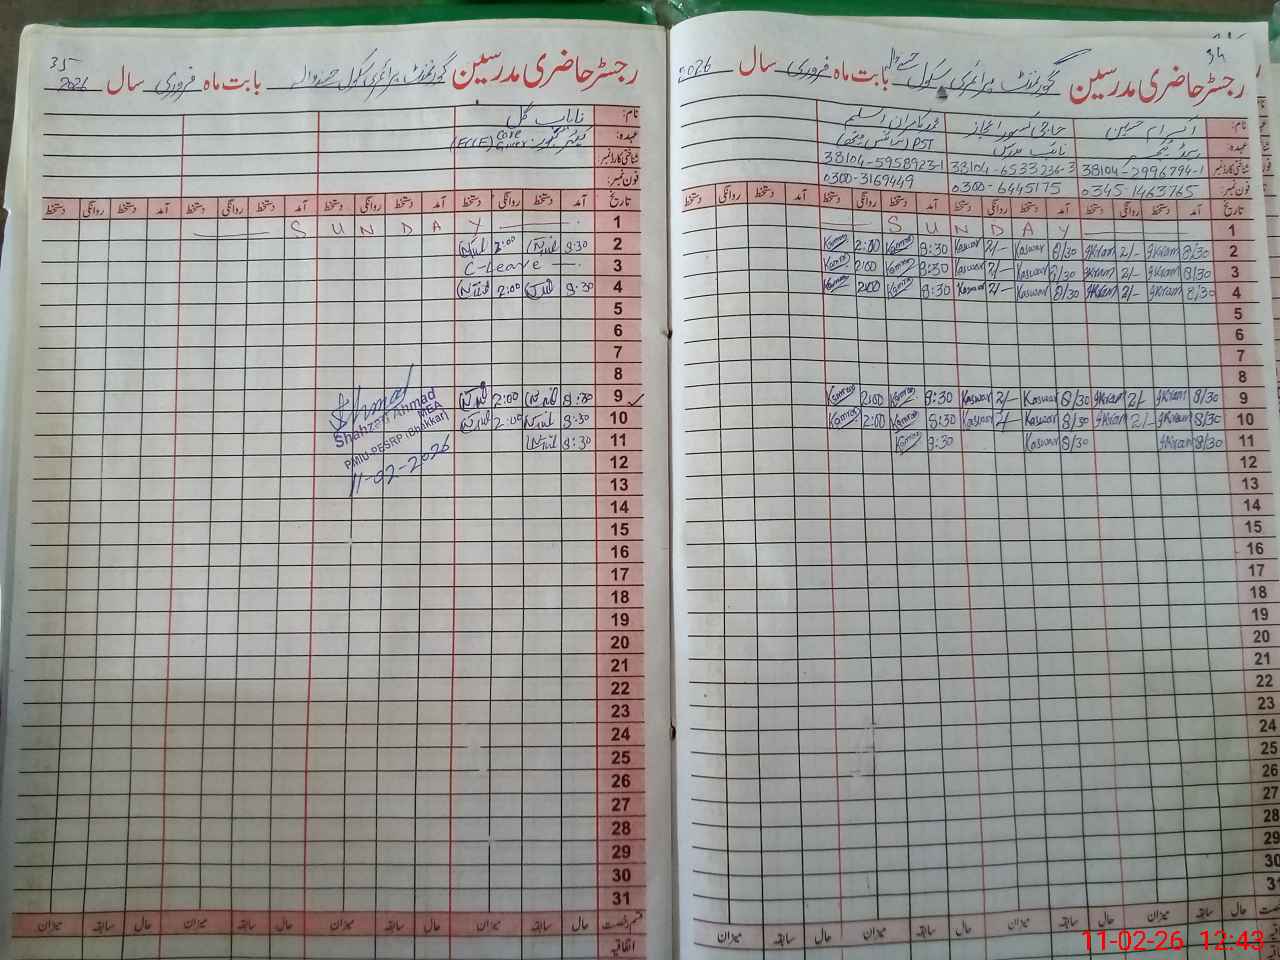 34
رجسٹر حاضری مدرسین گورنمنٹ پرائمری سکول بابت ماہ فروری سال 2026
نام: اکرام حسین حاجی تصور اعجاز محمد کامران اسلم
عہدہ: ہیڈ ٹیچر نائب مدرس PST (سائنس میتھ)
شناختی کارڈ نمبر: 38104-2996794-1 38104-6533236-3 38104-5958923-1
فون نمبر: 0345-1463765 0300-6445175 0300-3169449
تاریخ آمد دستخط روانگی دستخط آمد دستخط روانگی دستخط آمد دستخط روانگی دستخط آمد دستخط روانگی دستخط
1 SUNDAY
2 8/30 Ikram 2/- Ikram 8/30 Kaswar 2/- Kaswar 8:30 Kamran 2:00 Kamran
3 8/30 Ikram 2/- Ikram 8/30 Kaswar 2/- Kaswar 8:30 Kamran 2:00 Kamran
4 8/30 Ikram 2/- Ikram 8/30 Kaswar 2/- Kaswar 8:30 Kamran 2:00 Kamran
5
6
7
8
9 8/30 Ikram 2/- Ikram 8/30 Kaswar 2/- Kaswar 8:30 Kamran 2:00 Kamran
10 8/30 Ikram 2/- Ikram 8/30 Kaswar 2/- Kaswar 8:30 Kamran 2:00 Kamran
11 8/30 Ikram 8/30 Kaswar 8:30 Kamran
12
13
14
15
16
17
18
19
20
21
22
23
24
25
26
27
28
29
30
31
حال سابقہ میزان حال سابقہ میزان حال سابقہ میزان حال سابقہ میزان
35
رجسٹر حاضری مدرسین گورنمنٹ پرائمری سکول بابت ماہ فروری سال 2026
نام: نایاب گل
عہدہ: کیئر گیور Care Giver (ECCE)
شناختی کارڈ نمبر:
فون نمبر:
تاریخ آمد دستخط روانگی دستخط آمد دستخط روانگی دستخط آمد دستخط روانگی دستخط آمد دستخط روانگی دستخط
1 SUNDAY
2 8:30 2:00
3 C-Leave
4 8:30 2:00
5
6
7
8
9 8:30 2:00
10 8:30 2:00
11 8:30
Ahmad
Shahzad Ahmad
MEA
PMIU-PESRP (Bhakkar)
11-02-2026
12
13
14
15
16
17
18
19
20
21
22
23
24
25
26
27
28
29
30
31
قسم رخصت حال سابقہ میزان حال سابقہ میزان حال سابقہ میزان حال سابقہ میزان
اتفاقیہ
11-02-26 12:43